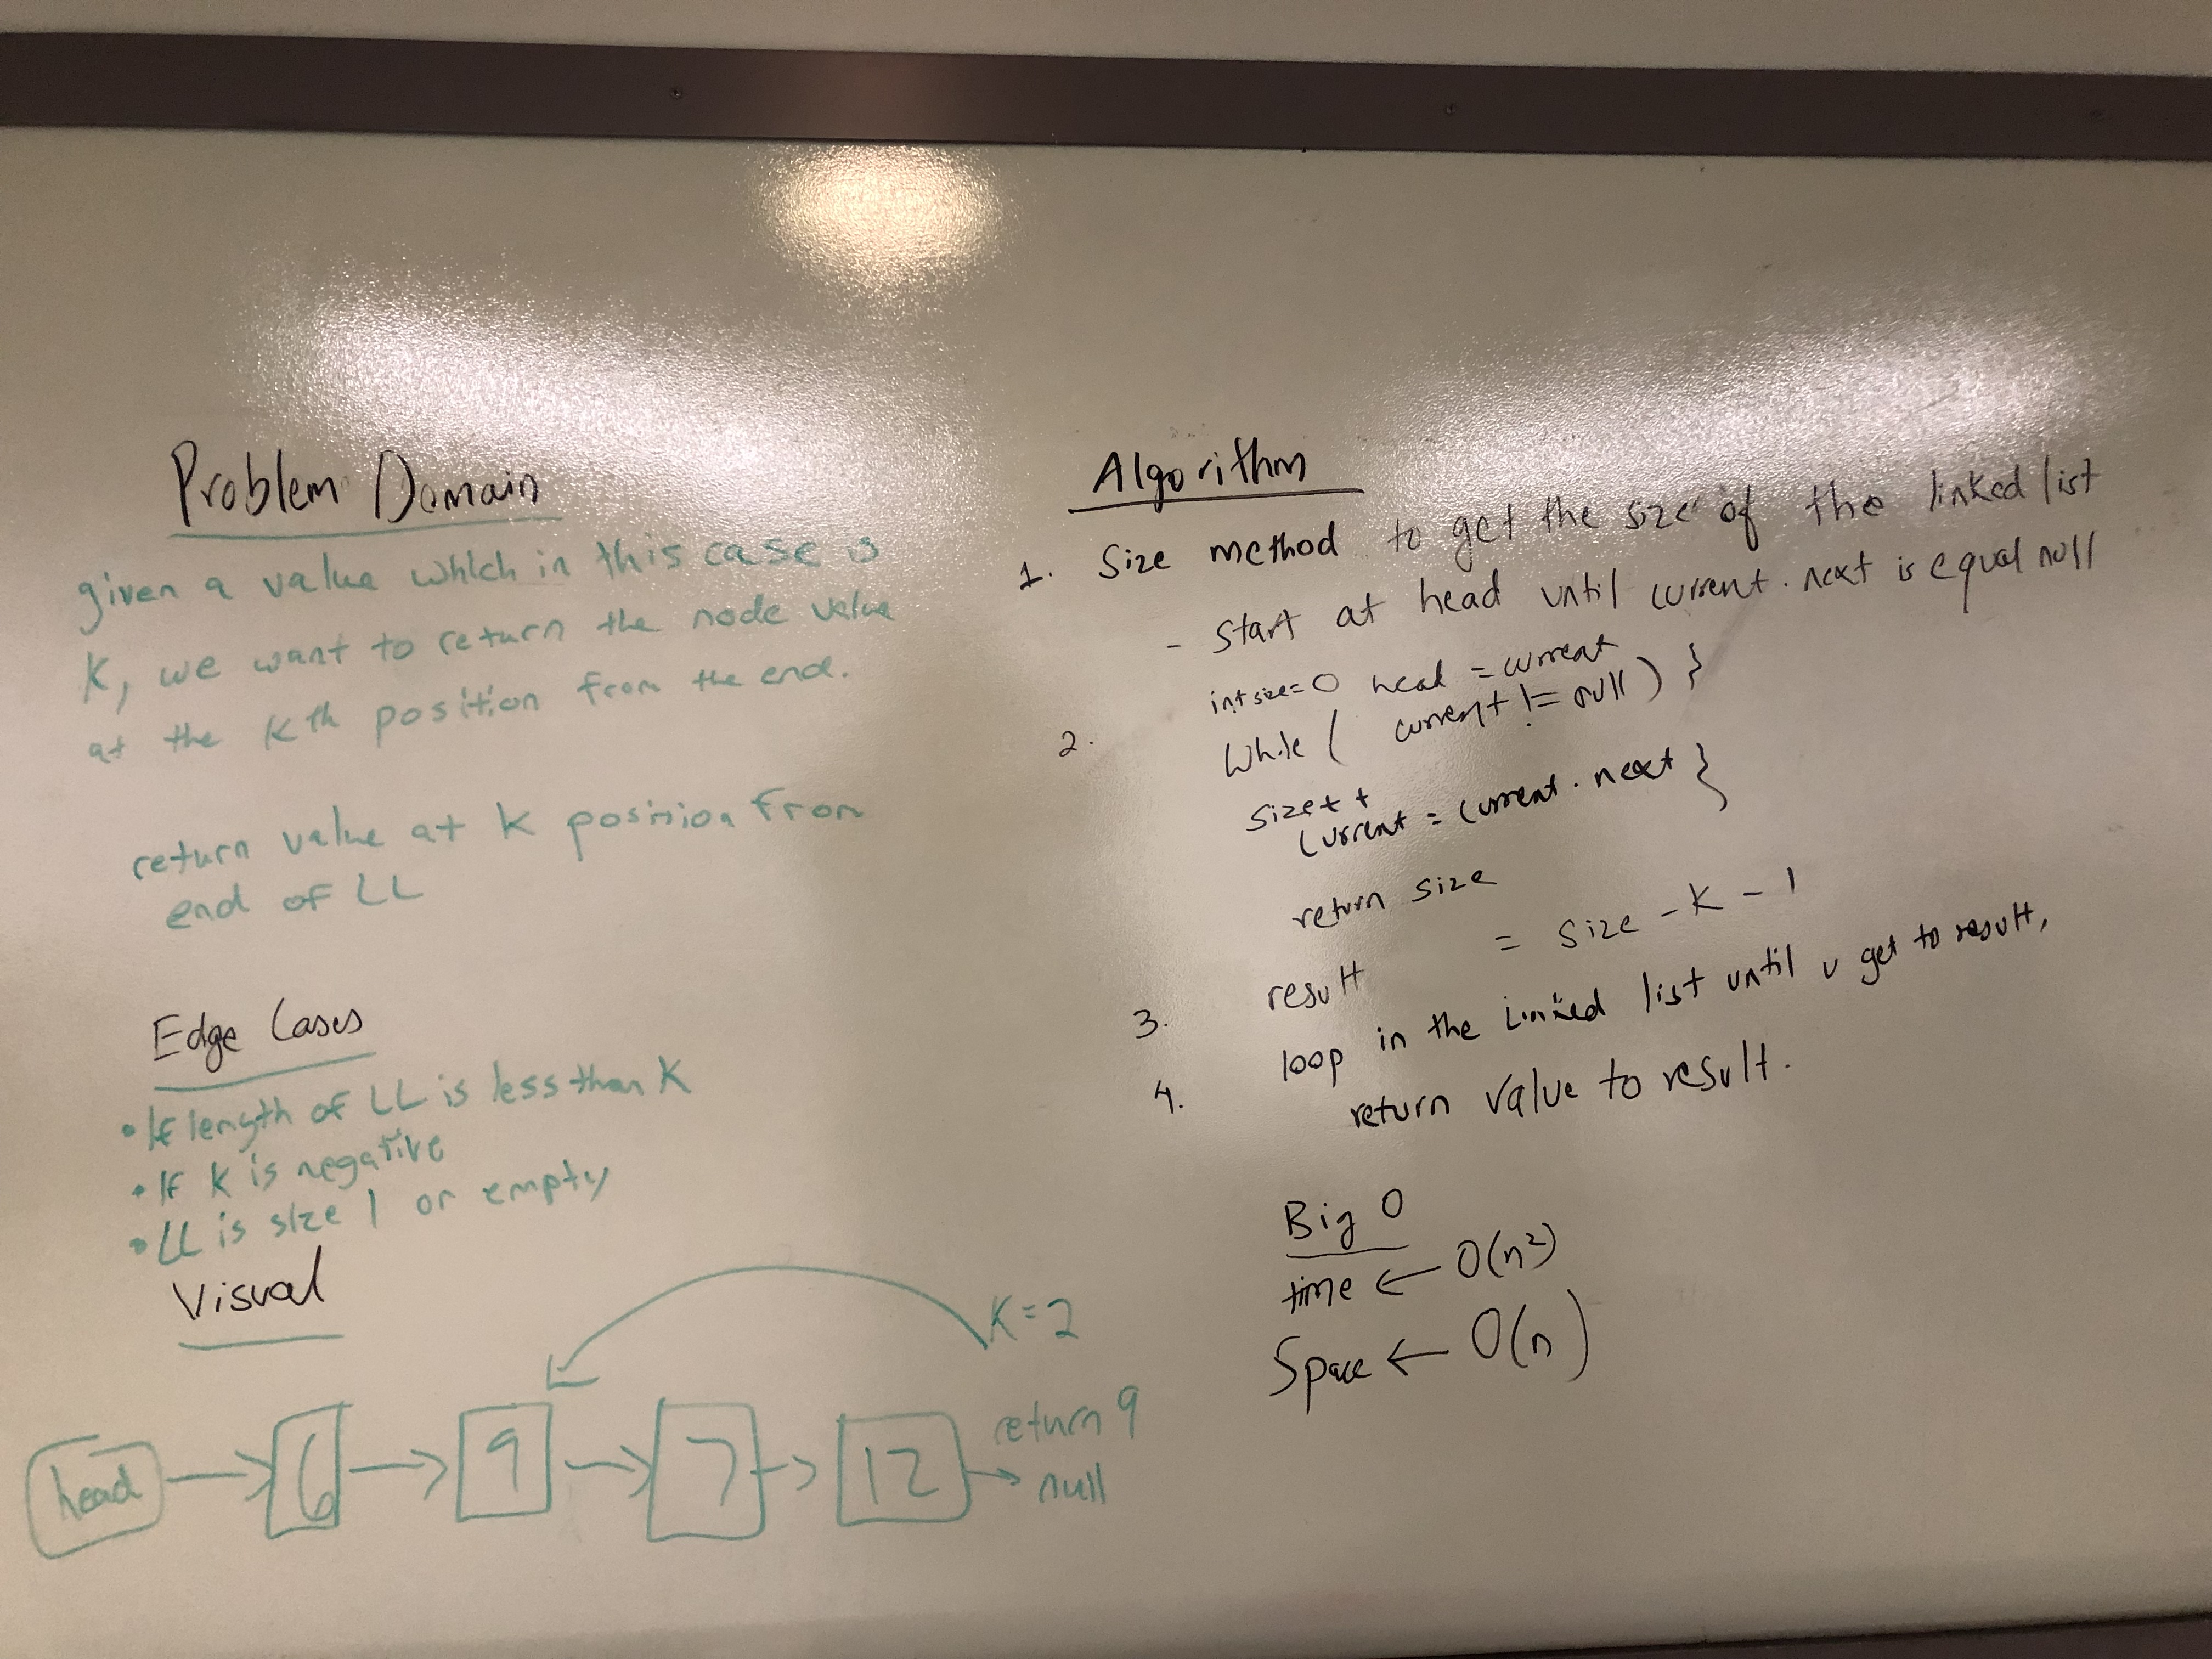 Problem Domain
given a value which in this case is
K, we want to return the node value
at the Kth position from the end.
return value at K posinion from
end of LL
Edge Cases
• If length of LL is less than K
• If K is negative
• LL is size 1 or empty
Visual
K=2
return 9
head → 6 → 9 → 7 → 12 → null
Algorithm
1. Size method to get the size of the linked list
- Start at head until current.next is equal null
int size=0 head = current
2. While ( current != null) }
size++
Current = Current.next }
return size
3. result = size - K - 1
4. loop in the Linked list until u get to result,
return value to result.
Big O
time ← O(n²)
Space ← O(n)